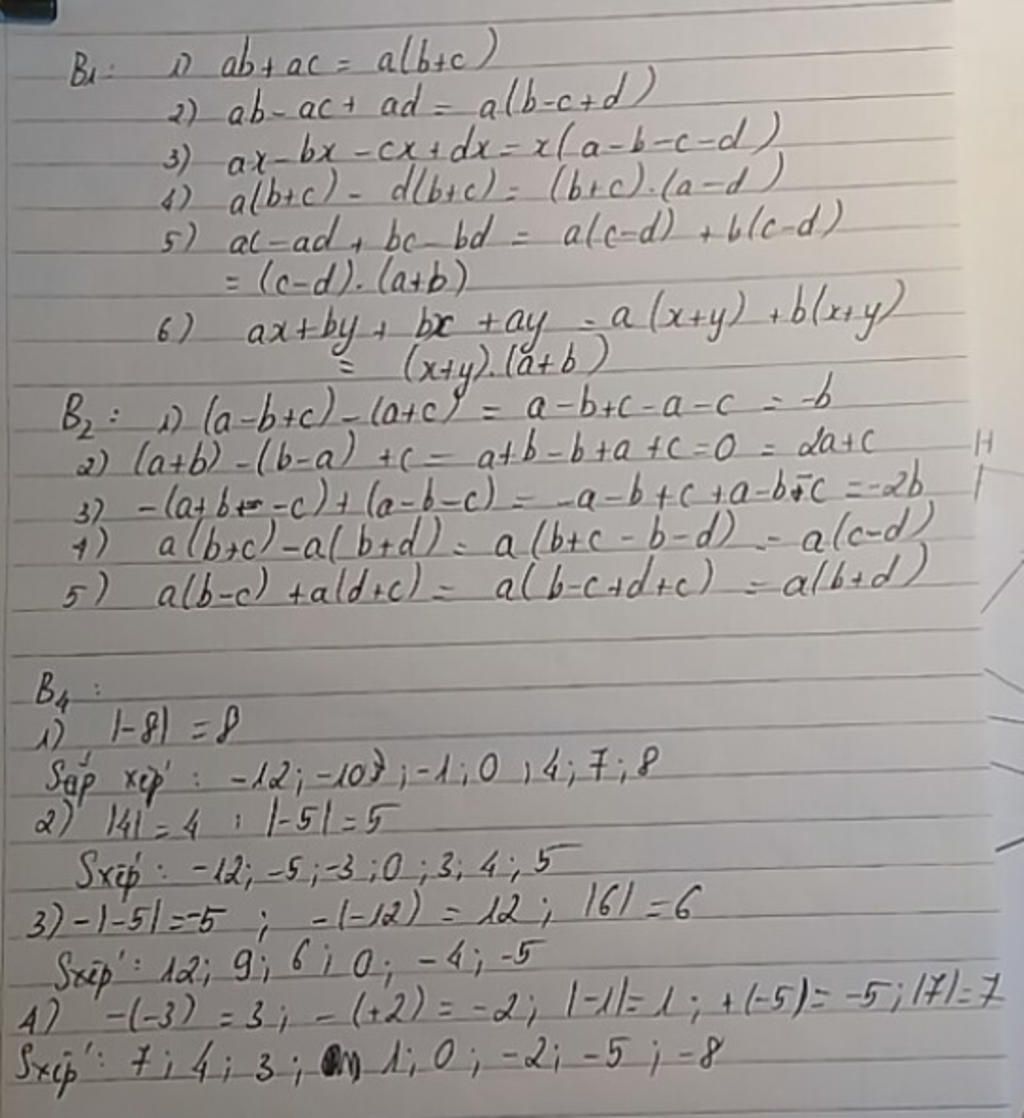 B1: 1) ab + ac = a(b+c)
2) ab - ac + ad = a(b-c+d)
3) ax - bx - cx + dx = x(a-b-c-d)
4) a(b+c) - d(b+c) = (b+c).(a-d)
5) ac - ad + bc - bd = a(c-d) + b(c-d)
= (c-d).(a+b)
6) ax + by + bx + ay = a(x+y) + b(x+y)
= (x+y).(a+b)
B2: 1) (a-b+c) - (a+c) = a-b+c-a-c = -b
2) (a+b) - (b-a) + c = a+b-b+a+c=0 = 2a+c
3) -(a+b-c) + (a-b-c) = -a-b+c+a-b-c = -2b
4) a(b+c) - a(b+d) = a(b+c-b-d) = a(c-d)
5) a(b-c) + a(d+c) = a(b-c+d+c) = a(b+d)
B4:
1) |-8| = 8
Sắp xếp: -12; -10; -1; 0; 4; 7; 8
2) |4| = 4; |-5| = 5
Sxếp: -12; -5; -3; 0; 3; 4; 5
3) -|-5| = -5; -(-12) = 12; |6| = 6
Sxếp: 12; 9; 6; 0; -4; -5
4) -(-3) = 3; -(+2) = -2; |-1| = 1; +(-5) = -5; |7| = 7
Sxếp: 7; 4; 3; 1; 0; -2; -5; -8